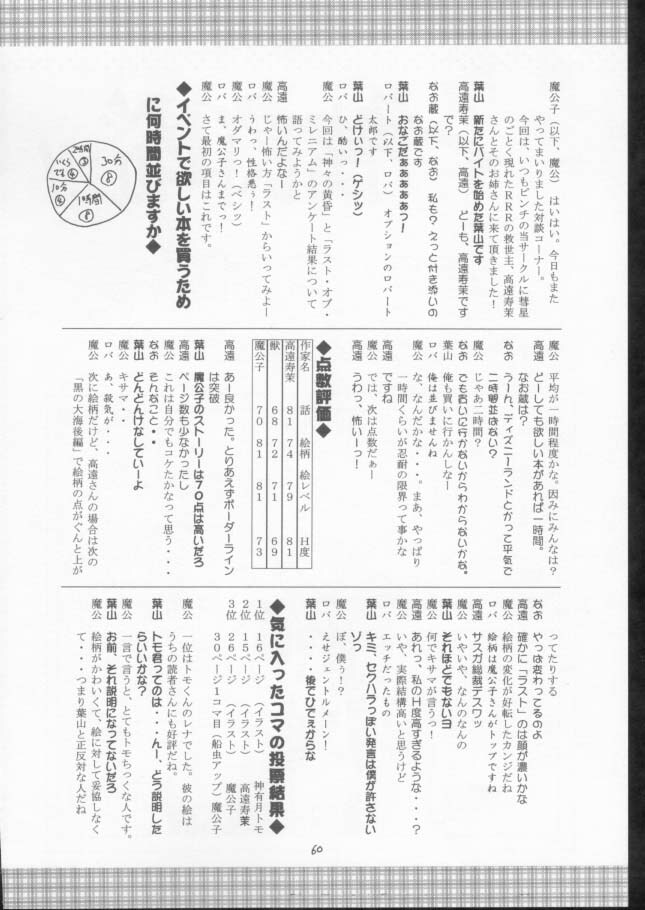 魔公子(以下、魔公) はいはい。今日もまた
やってまいりました対談コーナー。
今回は、いつもピンチの当サークルに彗星
のごとく現れたRRRの救世主、高遠寿茉
さんとそのお姉さんに来て頂きました!
葉山 新たにバイトを始めた葉山です
高遠寿茉(以下、高遠) どーも、高遠寿茉です
で?
なお蔵(以下、なお) 私も?えっと付き添いの
なお蔵です
葉山 おなごだぁぁぁぁぁっ!
ロバート(以下、ロバ) オプションのロバート
太郎です
葉山 どけぃっ!(ゲシッ)
ロバ ひ、酷いっ・・・
魔公 今回は「神々の黄昏」と「ラスト・オブ・
ミレニアム」のアンケート結果について
語ってみようかと
高遠 怖いんだよなー
魔公 じゃー怖い方「ラスト」からいってみよー
ロバ うわっ、性格悪ぅ!
魔公 オダマリっ!(ベシッ)
ロバ ま、魔公子さんまでっ!
魔公 さて最初の項目はこれです。
◆イベントで欲しい本を買うため
に何時間並びますか◆
30分
⑧
1時間
⑧
10分
④
いくら
でも④
2時間
③
魔公 平均が一時間程度かな。因みにみんなは?
高遠 どーしても欲しい本があれば一時間。
なお蔵は?
なお うーん、ディズニーランドとかって平気で
二時間並ばない?
魔公 じゃあ二時間?
なお でも買いに行かないからわからないかな。
葉山 俺も買いに行かんしなー
ロバ 俺は並びませんね
魔公 な、なんだかな・・・。まあ、やっぱり
一時間くらいが忍耐の限界って事かな
高遠 ですね
魔公 では、次は点数だぁー
高遠 うわっ、怖いーっ!
◆点数評価◆
作家名 話 絵柄 絵レベル H度
高遠寿茉 81 74 79 81
獣 68 72 71 69
魔公子 70 81 81 73
高遠 あー良かった。とりあえずボーダーライン
は突破
葉山 魔公子のストーリーは70点は高いだろ
高遠 ページ数も少なかったし
魔公 これは自分でもコケたかなって思う・・・
なお そんなこと・・
葉山 どんどんけなしていーよ
魔公 キサマ・・
ロバ あ、殺気が・・
魔公 次に絵柄だけど、高遠さんの場合は次の
「黒の大海後編」で絵柄の点がぐんと上が
ってたりする
なお やっぱ変わってるのよ
高遠 確かに「ラスト」のは顔が濃いかな
魔公 絵柄の変化が好転したカンジだね
ロバ 絵柄は魔公子さんがトップですね
高遠 サスガ総裁デスワッ
魔公 いやいや、なんのなんの
葉山 それほどでもないヨ
魔公 何でキサマが言うっ!
高遠 あれっ、私のH度高すぎるような・・・?
魔公 いや、実際結構高いと思うけど
ロバ エッチだったもの
葉山 キミ、セクハラっぽい発言は僕が許さない
ゾっ
魔公 ぼ、僕ぅ!?
ロバ えせジェントルメーン!
葉山 ・・・・後でひでぇからな
◆気に入ったコマの投票結果◆
1位 16ページ(イラスト) 神有月トモ
2位 15ページ(イラスト) 高遠寿茉
26ページ(イラスト) 魔公子
3位 30ページ1コマ目(船虫アップ)魔公子
魔公 一位はトモくんのレナでした。彼の絵は
うちの読者さんにも好評だね。
葉山 トモ君ってのは・・・んー、どう説明した
らいいかな?
魔公 一言で言うと、とてもトモちっくな人です。
葉山 お前、それ説明になってないだろ
魔公 絵柄がかわいくて、絵に対して妥協しなく
て・・・・つまり葉山と正反対な人だね
60